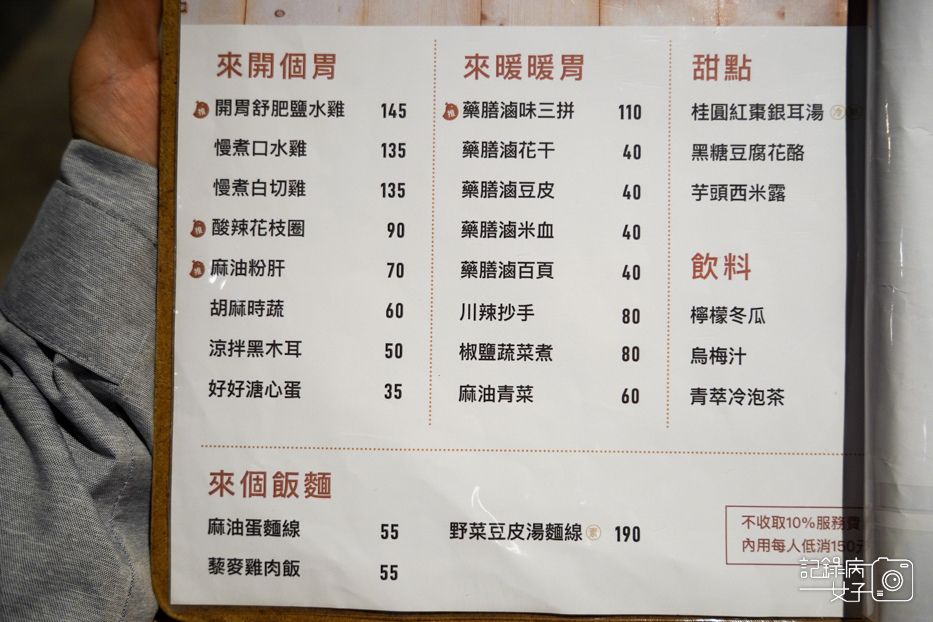 來開個胃
開胃舒肥鹽水雞 145
慢煮口水雞 135
慢煮白切雞 135
酸辣花枝圈 90
麻油粉肝 70
胡麻時蔬 60
涼拌黑木耳 50
好好溏心蛋 35
來暖暖胃
藥膳滷味三拼 110
藥膳滷花干 40
藥膳滷豆皮 40
藥膳滷米血 40
藥膳滷百頁 40
川辣抄手 80
椒鹽蔬菜煮 80
麻油青菜 60
甜點
桂圓紅棗銀耳湯 冷
黑糖豆腐花酪
芋頭西米露
飲料
檸檬冬瓜
烏梅汁
青萃冷泡茶
來個飯麵
麻油蛋麵線 55
藜麥雞肉飯 55
野菜豆皮湯麵線 素 190
不收取10%服務費
內用每人低消150元
記錄病
女子